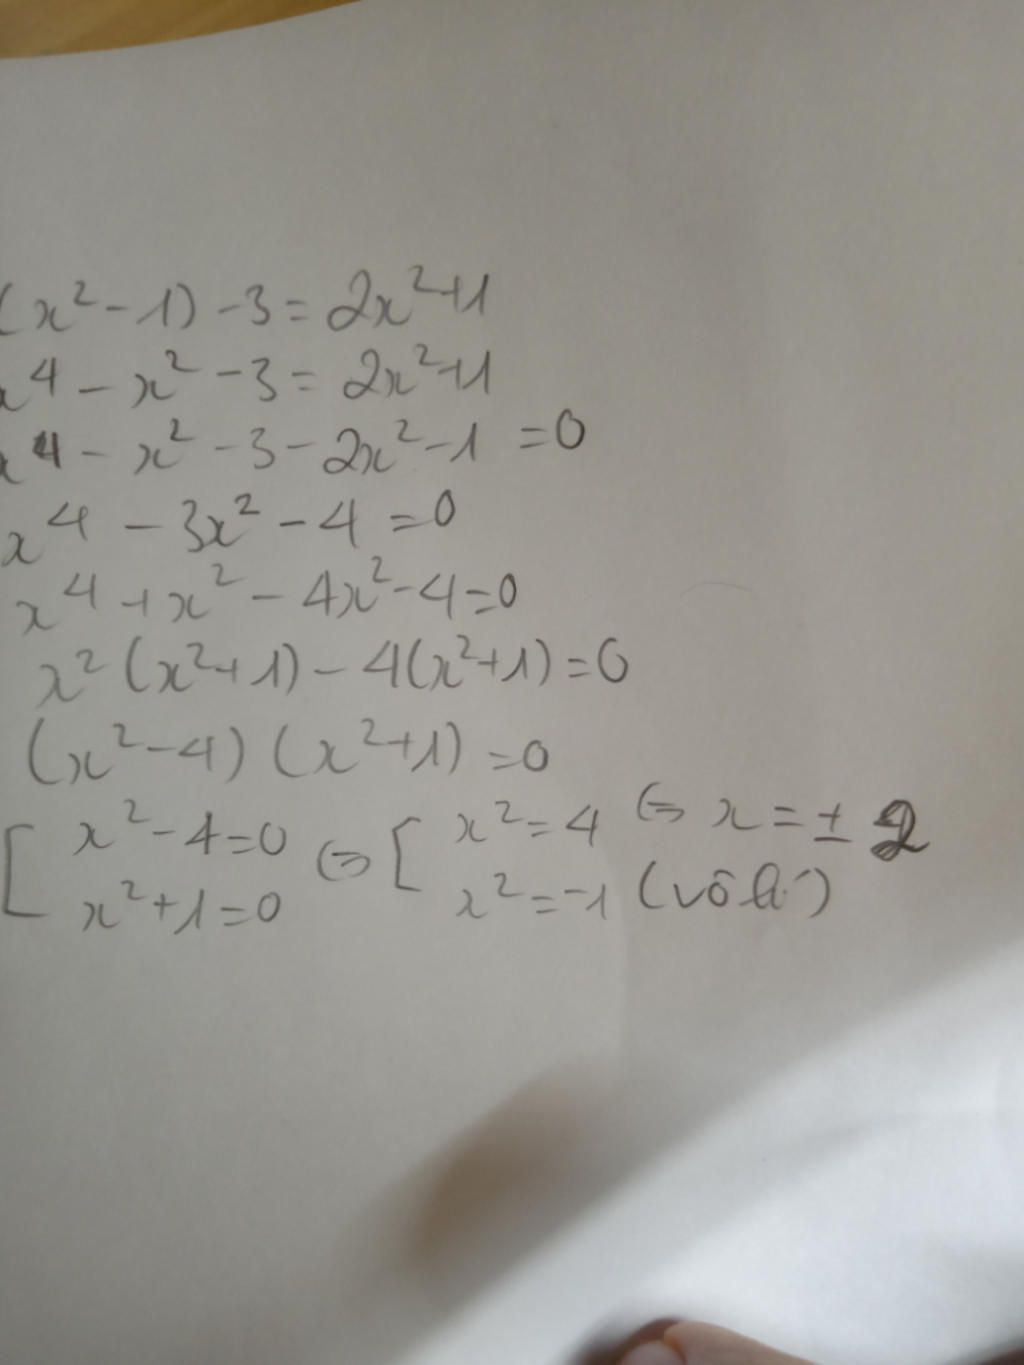 (x²-1)-3=2x²+1
x⁴-x²-3=2x²+1
x⁴-x²-3-2x²-1=0
x⁴-3x²-4=0
x⁴+x²-4x²-4=0
x²(x²+1)-4(x²+1)=0
(x²-4)(x²+1)=0
[ x²-4=0 ⇔ [ x²=4 ⇔ x=±2
x²+1=0 x²=-1 (vô lí)